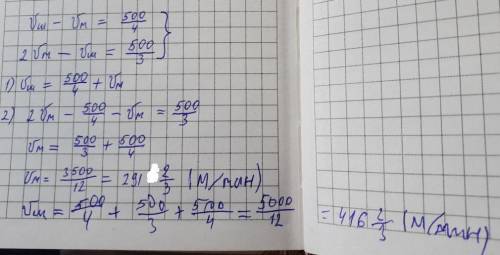 Vш − Vм = 500/4 }
2Vм − Vш = 500/3
1) Vш = 500/4 + Vм
2) 2Vм − 500/4 − Vм = 500/3
Vм = 500/3 + 500/4
Vм = 3500/12 = 291 2/3 (м/мин)
Vш = 500/4 + 500/3 + 500/4 = 5000/12 = 416 2/3 (м/мин)